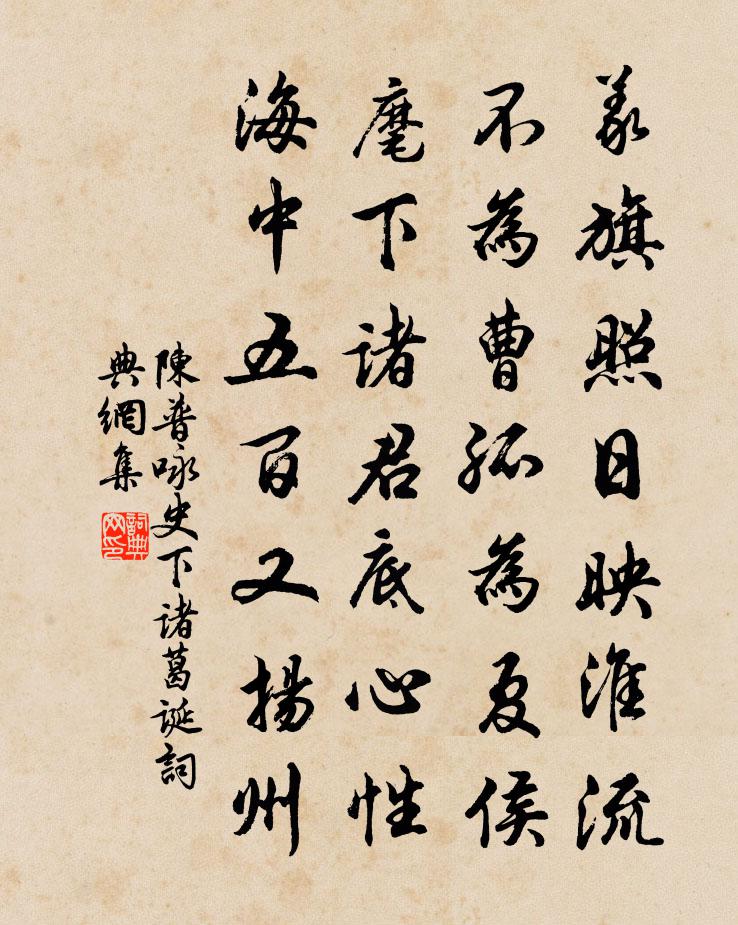 義旗照日映淮流
不為曹孤為夏侯
麾下諸君底心性
海中五百又揚州
陳普咏史下諸葛誕詞
典網集
詞典
网印